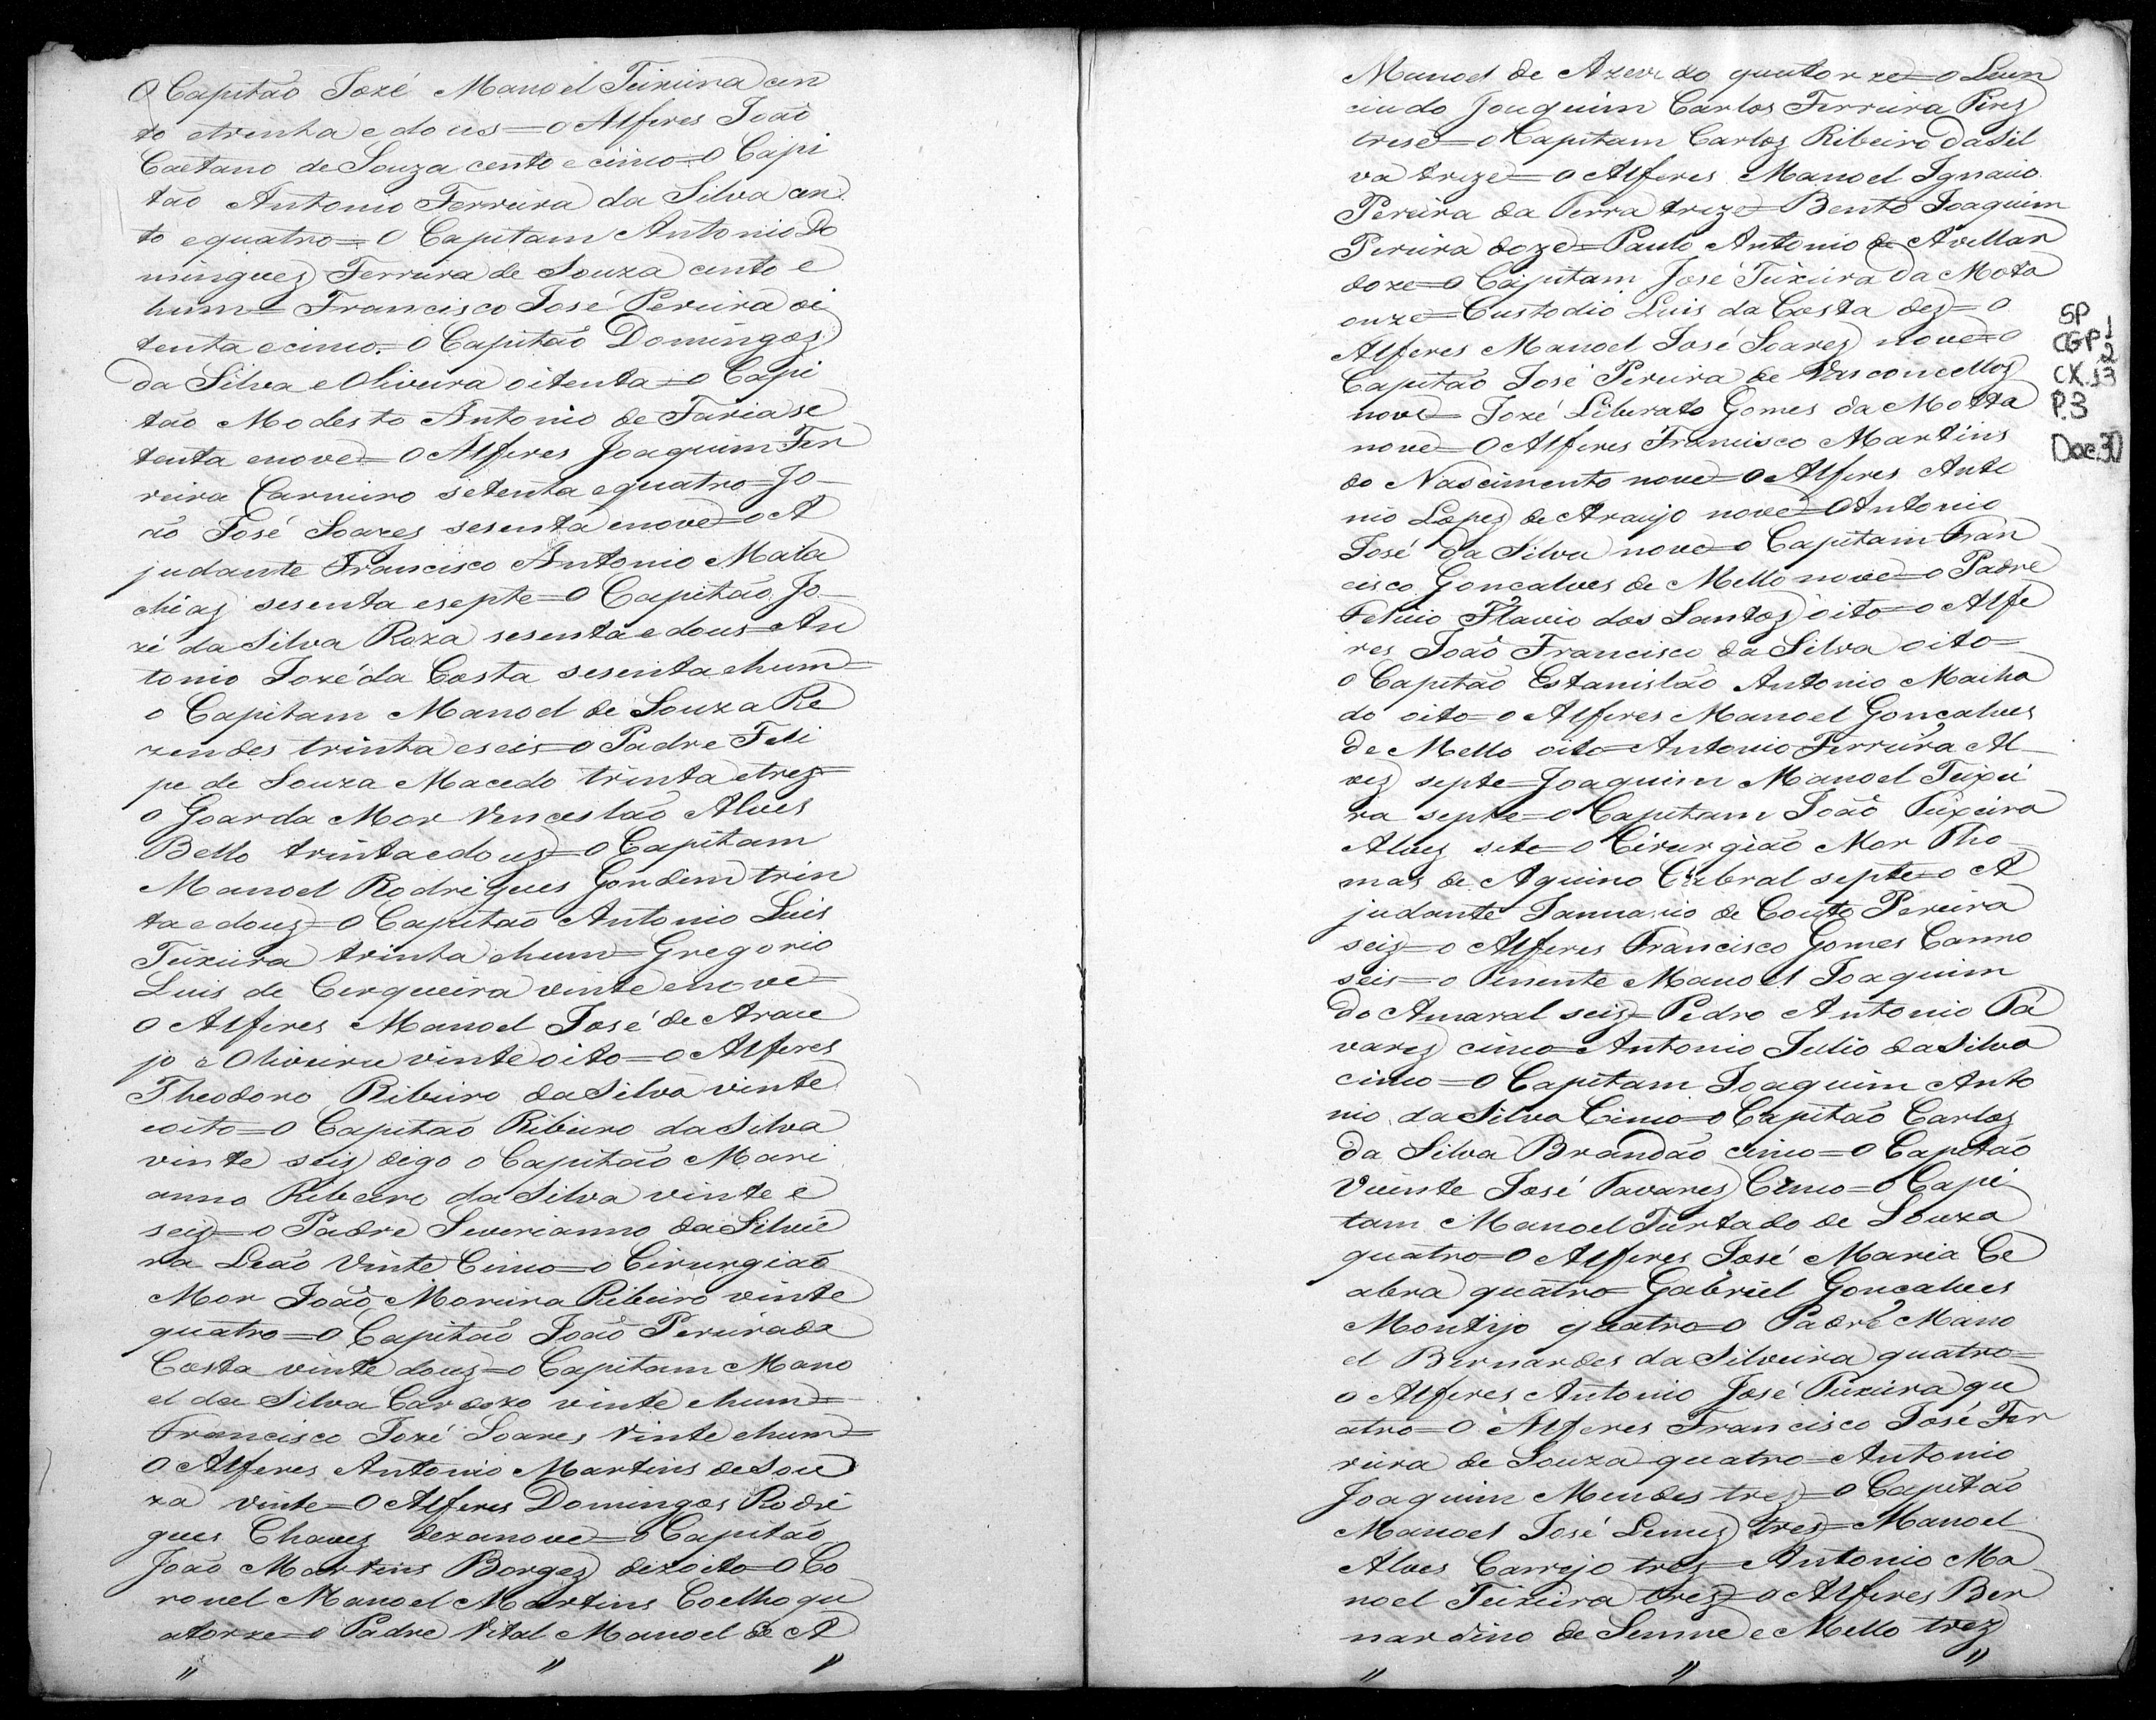 O Capitão Jozé Manoel Teixeira cen
to etrenta e dous=o Alferes João
Caetano de Souza cento e cinco=O Capi
tão Antonio Ferreira da Silva cen
to equatro=O Capitam Antonio Do
mingues Ferreira de Souza cento e
hum=Francisco José Pereira oi
tenta ecinco=O Capitão Domingos
da Silva e Oliveira oitenta=o Capi
tão Modesto Antonio de Faria se
tenta enove=O Alferes Joaquim Fer
reira Carneiro setenta equatro=Jo-
ão José Soares sesenta enove=o A
judante Francisco Antonio Mala
chias sesenta esepte=O Capitão Jo-
zé da Silva Roza sesenta e dous=An
tonio Jozé da Costa sesenta ehum=
o Capitam Manoel de Souza Re
zendes trinta eseis=o Padre Feli
pe de Souza Macedo trinta etrez=
o Goarda Mor Venceslão Alves
Bello trinta e douz=O Capitam
Manoel Rodrigues Gondim trin
ta e douz=O Capitão Antonio Luis
Teixeira trinta ehum=Gregorio
Luis de Cerqueira vinte enove=
O Alferes Manoel José de Arau
jo e Oliveira vinte oito=o Alferes
Theodoro Ribeiro da Silva vinte
eoito=O Capitão Ribeiro da Silva
vinte seis dego o Capitão Mari
anno Ribeiro da Silva vinte e
seis=o Padre Severianno da Silvei
ra Leão Vinte Cinco=o Cirurgião
Mor João Moreira Ribeiro vinte
quatro=O Capitão João Pereira da
Costa vinte douz=o Capitam Mano
el da Silva Cardozo vinte ehum=
Francisco Jozé Soares Vinte ehum=
O Alferes Antonio Martins de Sou
za vinte=O Alferes Domingos Rodri
gues Chaves dezanove=O Capitão
João Martins Borges dezoito=O Co
ronel Manoel Martins Coelho qu
atorze=o Padre Vital Manoel de A
" " "
Manoel de Azevedo quatorze=o Licen
ciado Joaquim Carlos Ferreira Pirez
trese=o Capitam Carlos Ribeiro da Sil
va treze=o Alferes Manoel Ignacio
Pereira da Terra treze=Bento Joaquim
Pereira doze=Paulo Antonio de Avellar
doze=O Capitam José Teixeira da Mota
onze=Custodio Luis da Costa dez=O
Alferes Manoel José Soares nove=o
Capitão José Pereira de Vasconcellos
nove=Jozé Liberato Gomes da Motta
nove=O Alferes Francisco Martins
do Nascimento nove=O Alferes Anto
nio Lopes de Araujo nove=O Antonio
José da Silva nove=o Capitam Fran
cisco Goncalves de Mello nove=o Padre
Felicio Flavio dos Santos oito=o Alfe
res João Francisco da Silva oito=
o Capitão Estanislão Antonio Macha
do oito=o Alferes Manoel Goncalves
de Mello oito=Antonio Ferreira Al-
ves septe=Joaquim Manoel Teixei
ra septe=o Capitam João Teixeira
Alves sete=o Cirurgião Mor Tho-
mas de Aquino Cabral septe=o A
judante Jannario de Couto Pereira
seis=o Alferes Francisco Gomes Canno
seis=o Tenente Manoel Joaquim
do Amaral seis=Pedro Antonio Ta
vares cinco=Antonio Julio da Silva
cinco=O Capitam Joaquim Anto
nio da Silva Cinco=o Capitão Carlos
da Silva Brandão cinco=O Capitão
Vicente José Tavares Cinco=O Capi
tam Manoel Furtado de Souza
quatro=O Alferes José Maria Ce
abra quatro=Gabriel Goncalves
Montijo quatro=o Padre Mano
el Bernardes da Silveira quatro=
o Alferes Antonio José Teixeira qu
atro=O Alferes Francisco José Fer
reira de Souza quatro=Antonio
Joaquim Mendes trez=O Capitão
Manoel José Lemes tres=Manoel
Alves Carrejo tres=Antonio Ma
noel Teixeira trez=o Alferes Ber
nardino de Senne e Mello trez
" " "
SP
CGP1
2
CX.13
P.3
Doc.30